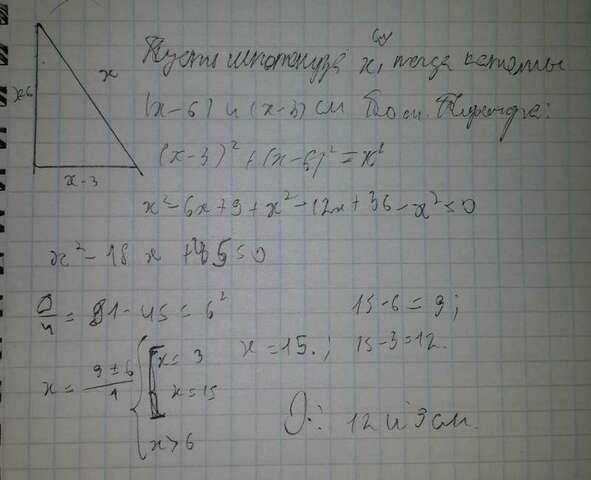 x-6
x
x-3
Пусть гипотенуза x см, тогда катеты
(x-6) и (x-3) см По т. Пифагора:
(x-3)² + (x-6)² = x²
x²-6x+9+x²-12x+36-x²=0
x²-18x+45=0
D/4 = 81-45=6²
x = (9±6)/1 { [ x=3
x=15
x>6
x=15.;
15-6=9;
15-3=12.
О.: 12 и 9 см.